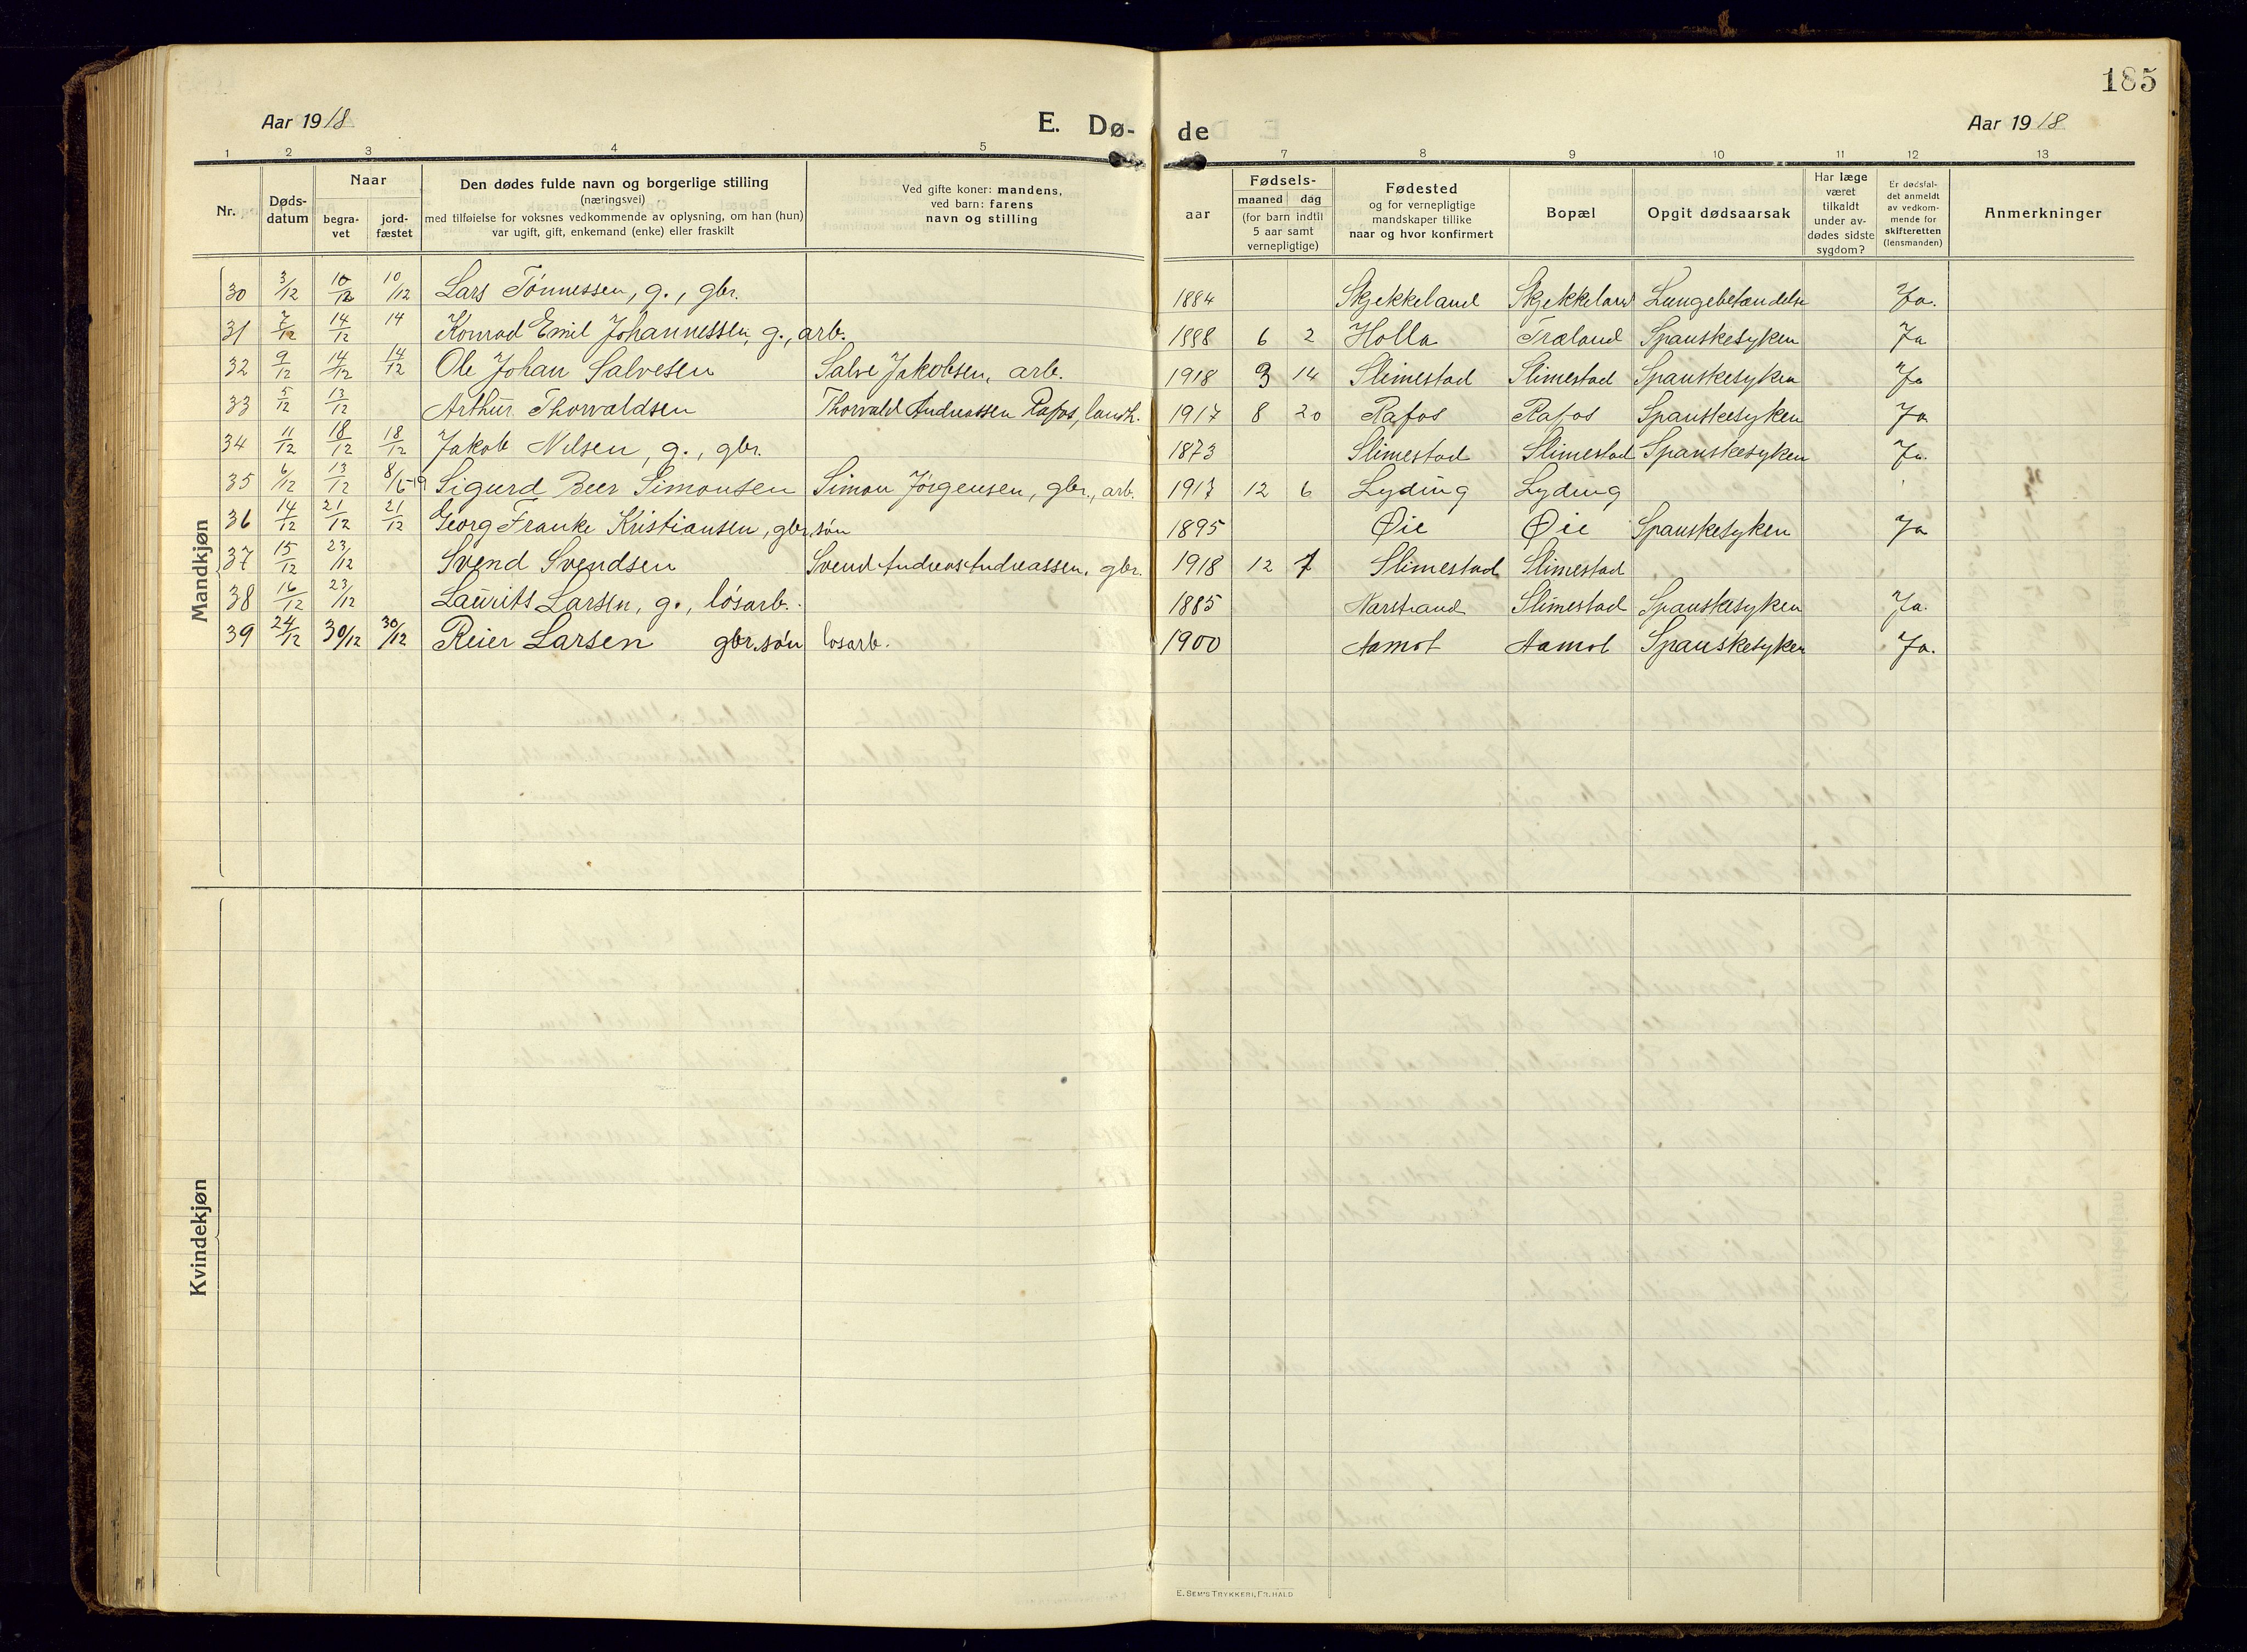 185
Aar 1918 E. Dø- de Aar 1918
1 2 3 4 5 7 8 9 10 11 12 13
Nr.
Døds-
datum
Naar
begra-
vet
jord-
fæstet
Den dødes fulde navn og borgerlige stilling
(næringsvei)
med tilføielse for voksnes vedkommende av oplysning, om han (hun)
var ugift, gift, enkemand (enke) eller fraskilt
Ved gifte koner: mandens,
ved barn: farens
navn og stilling
Fødsels-
aar
maaned dag
(for barn indtil
5 aar samt
vernepligtige)
Fødested
og for vernepligtige
mandskaper tillike
naar og hvor konfirmert
Bopæl
Opgit dødsaarsak
Har læge
været
tilkaldt
under av-
dødes sidste
sygdom?
Er dødsfal-
det anmeldt
av vedkom-
mende for
skifteretten
(lensmanden)
Anmerkninger
Mandkjøn
30 3/12 10/12 10/12 Lars Tønnessen, g., gbr. 1884 Skjekkeland Skjekkeland Lungebetændelse Ja.
31 7/12 14/12 14 Konrad Emil Johannessen, g., arb. 1888 6 2 Holla Træland Spanskesyken Ja
32 9/12 14/12 14/12 Ole Johan Salvesen Salve Jakobsen, arb. 1918 3 14 Slimestad Slimestad Spanskesyken Ja
33 5/12 13/12 Arthur Thorvaldsen Thorvald Andreassen Rafos, landh. 1917 8 20 Rafos Rafos Spanskesyken Ja
34 11/12 18/12 18/12 Jakob Nilsen, g., gbr. 1873 Slimestad Slimestad Spanskesyken Ja.
35 6/12 13/12 8/6-19 Sigurd Beer Simonsen Simon Jørgensen, gbr., arb. 1917 12 6 Lyding Lyding
36 14/12 21/12 21/12 Georg Franke Kristiansen, gbr.søn 1895 Øie Øie Spanskesyken Ja
37 15/12 23/12 Svend Svendsen Svend Andreas Andreassen, gbr. 1918 12 7 Slimestad Slimestad
38 16/12 23/12 Laurits Larsen, g., løsarb. 1885 Narstrand Slimestad Spanskesyken Ja.
39 24/12 30/12 30/12 Reier Larsen gbr.søn løsarb. 1900 Aamot Aamot Spanskesyken Ja.
Kvindekjøn
E. SEM'S TRYKKERI, FR. HALD